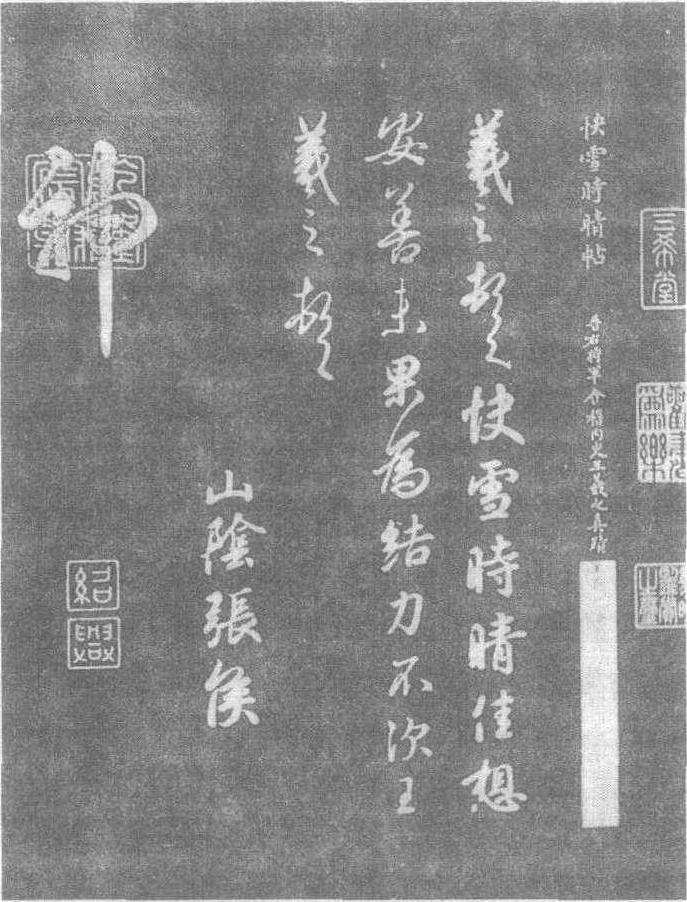 三希堂
快雪時晴帖
晉右將軍會稽內史王羲之真蹟
羲之頓首快雪時晴佳想
安善未果為結力不次王
羲之頓首
山陰張侯
神
紹
興